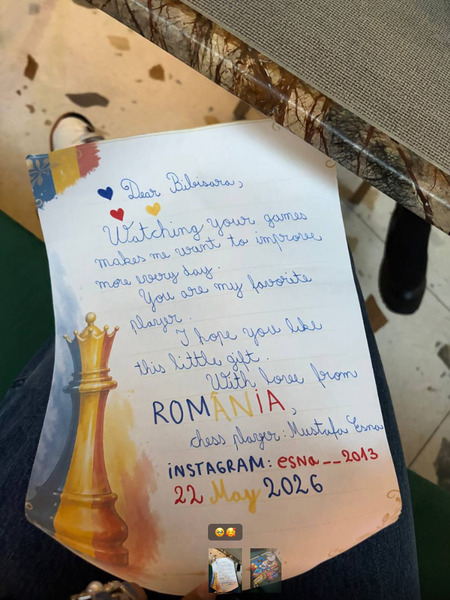 Dear Bibisara,
Watching your games
makes me want to improve
more every day.
You are my favorite
player.
I hope you like
this little gift.
With love from
ROMÂNIA,
chess player: Mustafa Esna
iNSTAGRAM: esna__2013
22 May 2026